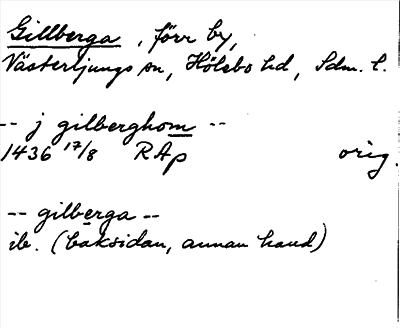 Gillberga, förr by,
Västerljungs sn, Hölebo hd, Sdm. l.
-- j gilberghom --
1436 17/8 RAp orig.
-- gilberga --
ib. (baksidan, annan hand)